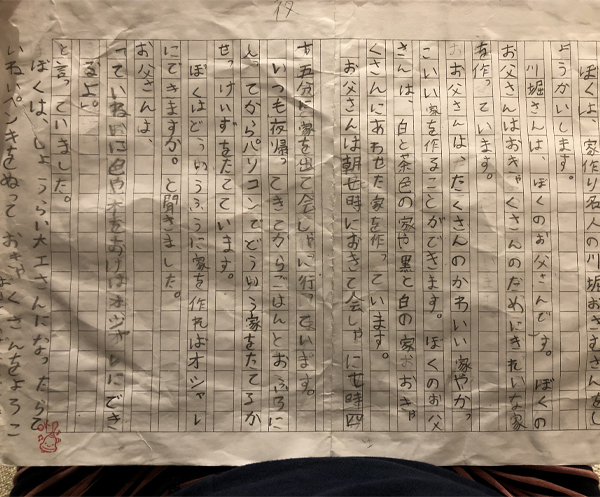 ぼくは、家作り名人の川堀おさむさんをし
ようかいします。
川堀さんは、ぼくのお父さんです。ぼくの
お父さんはおきゃくさんのためにきれいな家
を作っています。
お父さんは、たくさんのかわいい家やかっ
こいい家を作ることができます。ぼくのお父
さんは、白と茶色の家や黒と白の家おきゃ
くさんにあわせた家を作っています。
お父さんは朝七時におきて会しゃに七時四
十五分に家を出て会しゃに行っています。
いつも夜帰ってきてからごはんとおふろに
入ってからパソコンでどういう家をたてるか
せっけいずをたてています。
ぼくはどういうふうに家を作ればオシャレ
にできますか。と聞きました。
お父さんは、
「ていねいに色や木をおけばオシャレにでき
るよ。」
と言っていました。
ぼくは、しょうらい大工さんになったらて
いねいペンキをぬっておきゃくさんをよろこ